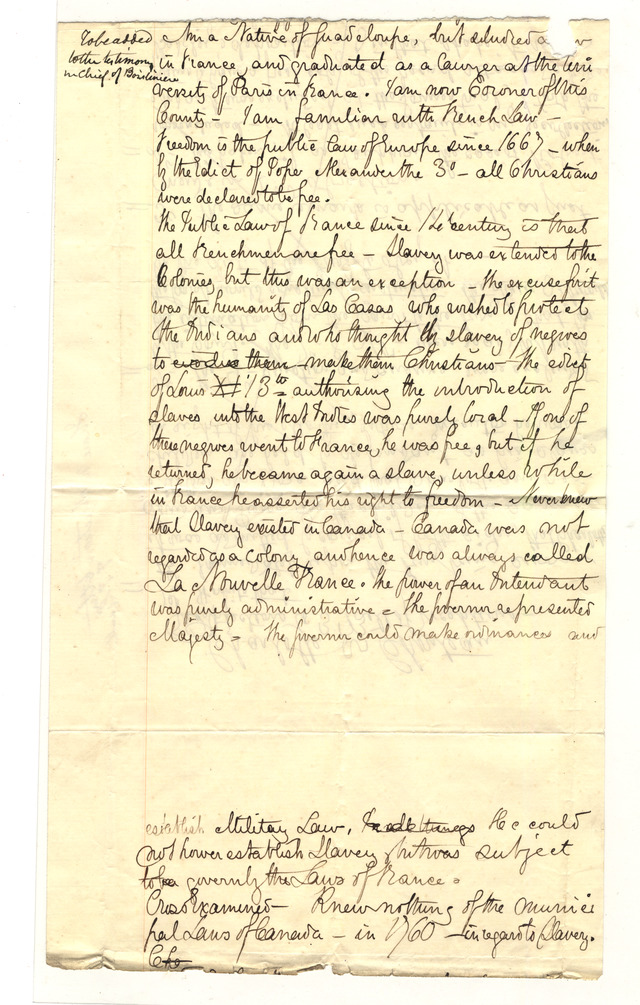 To be added
to the testimony
in Chief of Boislinière
Am a Native of Guadeloupe, but studied Law
in France, and graduated as a Lawyer at the Uni
versity of Paris in France. I am now Coroner of this
County – I am familiar with French Law –
Freedom is the public Law of Europe since 1667 – when
by the Edict of Pope Alexander the 3d – all Christians
were declared to be free.
The Public Law of France since 14th century is that
all Frenchmen are free – Slavery was extended to the
Colonies, but this was an exception – the excuse first
was the humanity of Las Casas who wished to protect
the Indians and who thought by slavery of negroes
to make them Christians – The edict
of Louis 13th authorising the introduction of
slaves into the West Indies was purely local – If one of
these negroes went to France, he was free, but if he
returned, he became again a slave, unless while
in France he asserted his right to freedom – Never knew
that Slavery existed in Canada – Canada was not
regarded as a colony, and hence was always called
La Nouvelle France. The power of an Intendant
was purely administrative = The governor represented
Majesty = The governor could make ordinances and
establish Military Law, He could
not however establish Slavery, but was subject
to govern by the Laws of France.
Cross Examined – Knew nothing of the munici
pal Laws of Canada – in 1760 – in regard to Slavery.